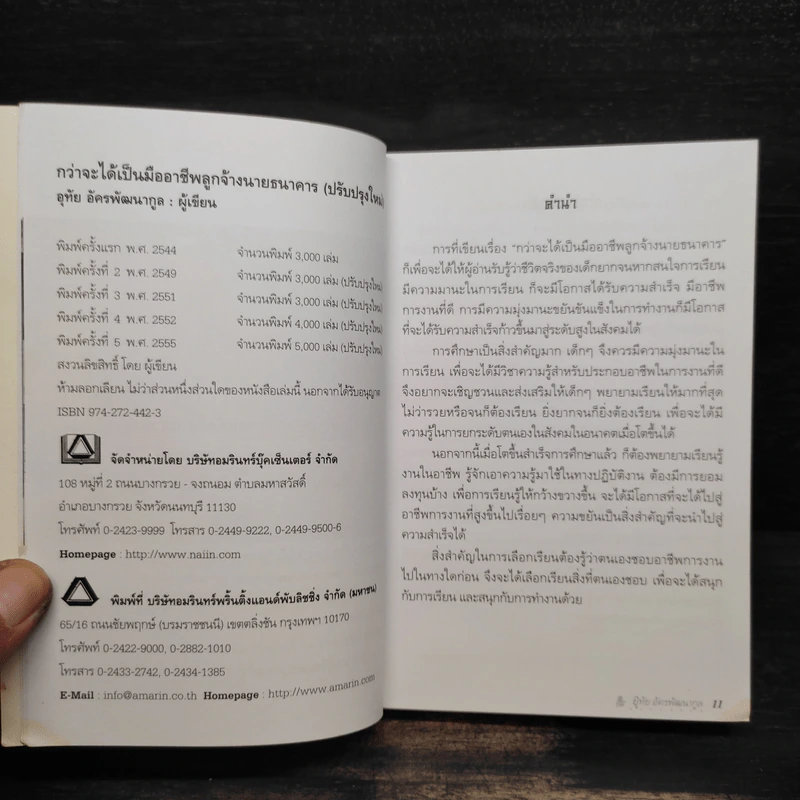 กว่าจะได้เป็นมืออาชีพลูกจ้างนายธนาคาร (ปรับปรุงใหม่)
อุทัย อัครพัฒนากูล : ผู้เขียน
พิมพ์ครั้งแรก พ.ศ. 2544 จำนวนพิมพ์ 3,000 เล่ม
พิมพ์ครั้งที่ 2 พ.ศ. 2549 จำนวนพิมพ์ 3,000 เล่ม (ปรับปรุงใหม่)
พิมพ์ครั้งที่ 3 พ.ศ. 2551 จำนวนพิมพ์ 3,000 เล่ม (ปรับปรุงใหม่)
พิมพ์ครั้งที่ 4 พ.ศ. 2552 จำนวนพิมพ์ 4,000 เล่ม (ปรับปรุงใหม่)
พิมพ์ครั้งที่ 5 พ.ศ. 2555 จำนวนพิมพ์ 5,000 เล่ม (ปรับปรุงใหม่)
สงวนลิขสิทธิ์ โดย ผู้เขียน
ห้ามลอกเลียน ไม่ว่าส่วนหนึ่งส่วนใดของหนังสือเล่มนี้ นอกจากได้รับอนุญาต
ISBN 974-272-442-3
จัดจำหน่ายโดย บริษัทอมรินทร์บุ๊คเซ็นเตอร์ จำกัด
108 หมู่ที่ 2 ถนนบางกรวย - จงถนอม ตำบลมหาสวัสดิ์
อำเภอบางกรวย จังหวัดนนทบุรี 11130
โทรศัพท์ 0-2423-9999 โทรสาร 0-2449-9222, 0-2449-9500-6
Homepage : http://www.naiin.com
พิมพ์ที่ บริษัทอมรินทร์พริ้นติ้งแอนด์พับลิชชิ่ง จำกัด (มหาชน)
65/16 ถนนชัยพฤกษ์ (บรมราชชนนี) เขตตลิ่งชัน กรุงเทพฯ 10170
โทรศัพท์ 0-2422-9000, 0-2882-1010
โทรสาร 0-2433-2742, 0-2434-1385
E-Mail : info@amarin.co.th Homepage : http://www.amarin.com
คำนำ
การที่เขียนเรื่อง "กว่าจะได้เป็นมืออาชีพลูกจ้างนายธนาคาร"
ก็เพื่อจะได้ให้ผู้อ่านรับรู้ว่าชีวิตจริงของเด็กยากจนหากสนใจการเรียน
มีความมานะในการเรียน ก็จะมีโอกาสได้รับความสำเร็จ มีอาชีพ
การงานที่ดี การมีความมุ่งมานะขยันขันแข็งในการทำงานก็มีโอกาส
ที่จะได้รับความสำเร็จก้าวขึ้นมาสู่ระดับสูงในสังคมได้
การศึกษาเป็นสิ่งสำคัญมาก เด็กๆ จึงควรมีความมุ่งมานะใน
การเรียน เพื่อจะได้มีวิชาความรู้สำหรับประกอบอาชีพในการงานที่ดี
จึงอยากจะเชิญชวนและส่งเสริมให้เด็กๆ พยายามเรียนให้มากที่สุด
ไม่ว่ารวยหรือจนก็ต้องเรียน ยิ่งยากจนก็ยิ่งต้องเรียน เพื่อจะได้มี
ความรู้ในการยกระดับตนเองในสังคมในอนาคตเมื่อโตขึ้นได้
นอกจากนี้เมื่อโตขึ้นสำเร็จการศึกษาแล้ว ก็ต้องพยายามเรียนรู้
งานในอาชีพ รู้จักเอาความรู้มาใช้ในทางปฏิบัติงาน ต้องมีการยอม
ลงทุนบ้าง เพื่อการเรียนรู้ให้กว้างขวางขึ้น จะได้มีโอกาสที่จะได้ไปสู่
อาชีพการงานที่สูงขึ้นไปเรื่อยๆ ความขยันเป็นสิ่งสำคัญที่จะนำไปสู่
ความสำเร็จได้
สิ่งสำคัญในการเลือกเรียนต้องรู้ว่าตนเองชอบอาชีพการงาน
ไปในทางใดก่อน จึงจะได้เลือกเรียนสิ่งที่ตนเองชอบ เพื่อจะได้สนุก
กับการเรียน และสนุกกับการทำงานด้วย
อุทัย อัครพัฒนากูล 11